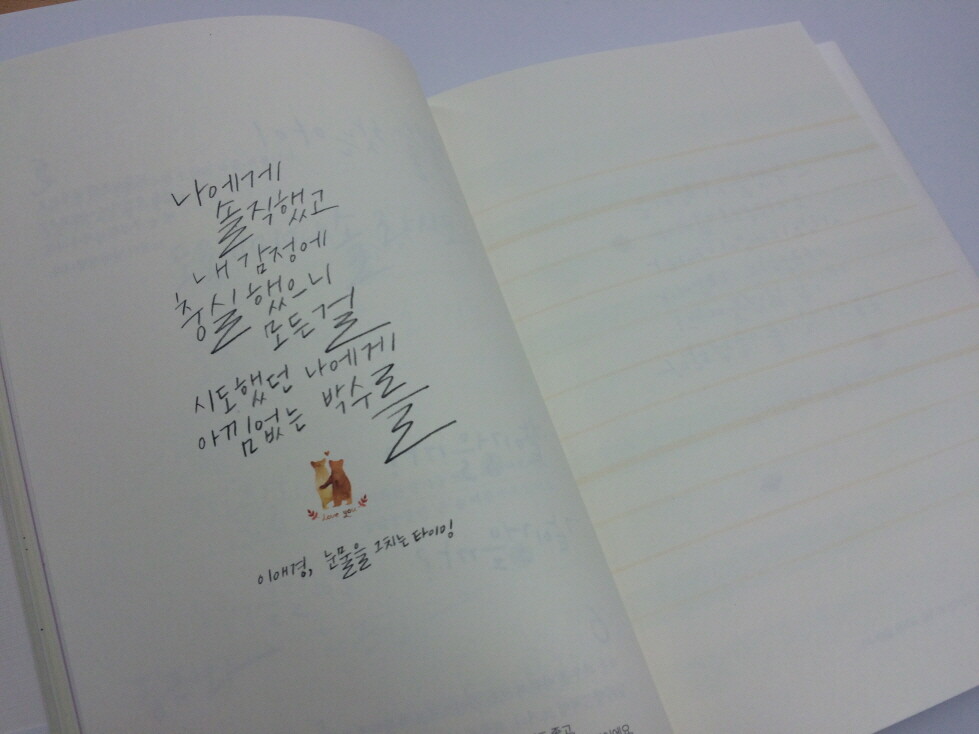 나에게
솔직했고
내 감정에
충실했으니
모든걸
시도했던 나에게
아낌없는 박수를
love you
이애경, 눈물을 그치는 타이밍